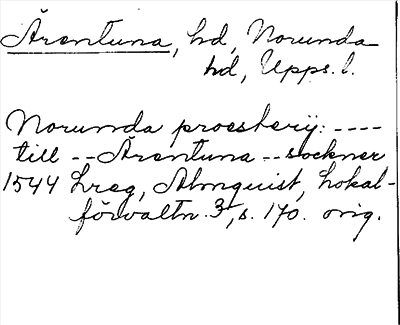 Ärentuna, hd, Norunda
hd, Upps. l.
Norunda prosterij: ----
till -- Ärentuna -- sockner
1544 Lreg, Almquist, Lokal-
förvaltn. 3, s. 170. orig.